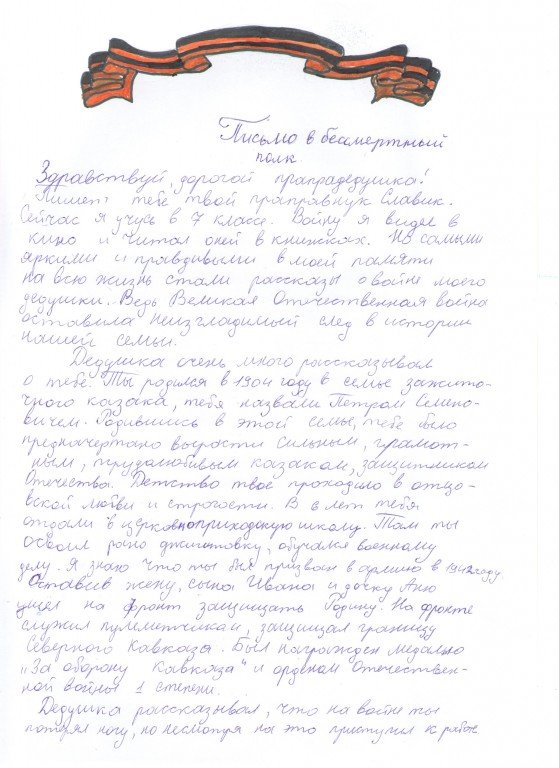 Письмо в бессмертный
полк
Здравствуй, дорогой прапрадедушка!
Пишет тебе твой праправнук Славик.
Сейчас я учусь в 7 классе. Войну я видел в
кино и читал о ней в книжках. Но самыми
яркими и правдивыми в моей памяти
на всю жизнь стали рассказы о войне моего
дедушки. Ведь Великая Отечественная война
оставила неизгладимый след в истории
нашей семьи.
Дедушка очень много рассказывал
о тебе. Ты родился в 1904 году в семье зажито-
чного казака, тебя назвали Петром Семено-
вичем. Родившись в этой семье, тебе было
предначертано вырасти сильным, грамот-
ным, трудолюбивым казаком, защитником
Отечества. Детство твоё проходило в отцо-
вской любви и строгости. В 8 лет тебя
отдали в церковноприходскую школу. Там ты
освоил рано джигитовку, обучался военному
делу. Я знаю что ты был призван в армию в 1942 году
Оставив жену, сына Ивана и дочку Аню
ушел на фронт защищать Родину. На фронте
служил пулеметчиком, защищал границу
Северного Кавказа. Был награжден медалью
„За оборону Кавказа" и орденом Отечествен-
ной войны 1 степени.
Дедушка рассказывал, что на войне ты
потерял ногу, но несмотря на это приступил к работе